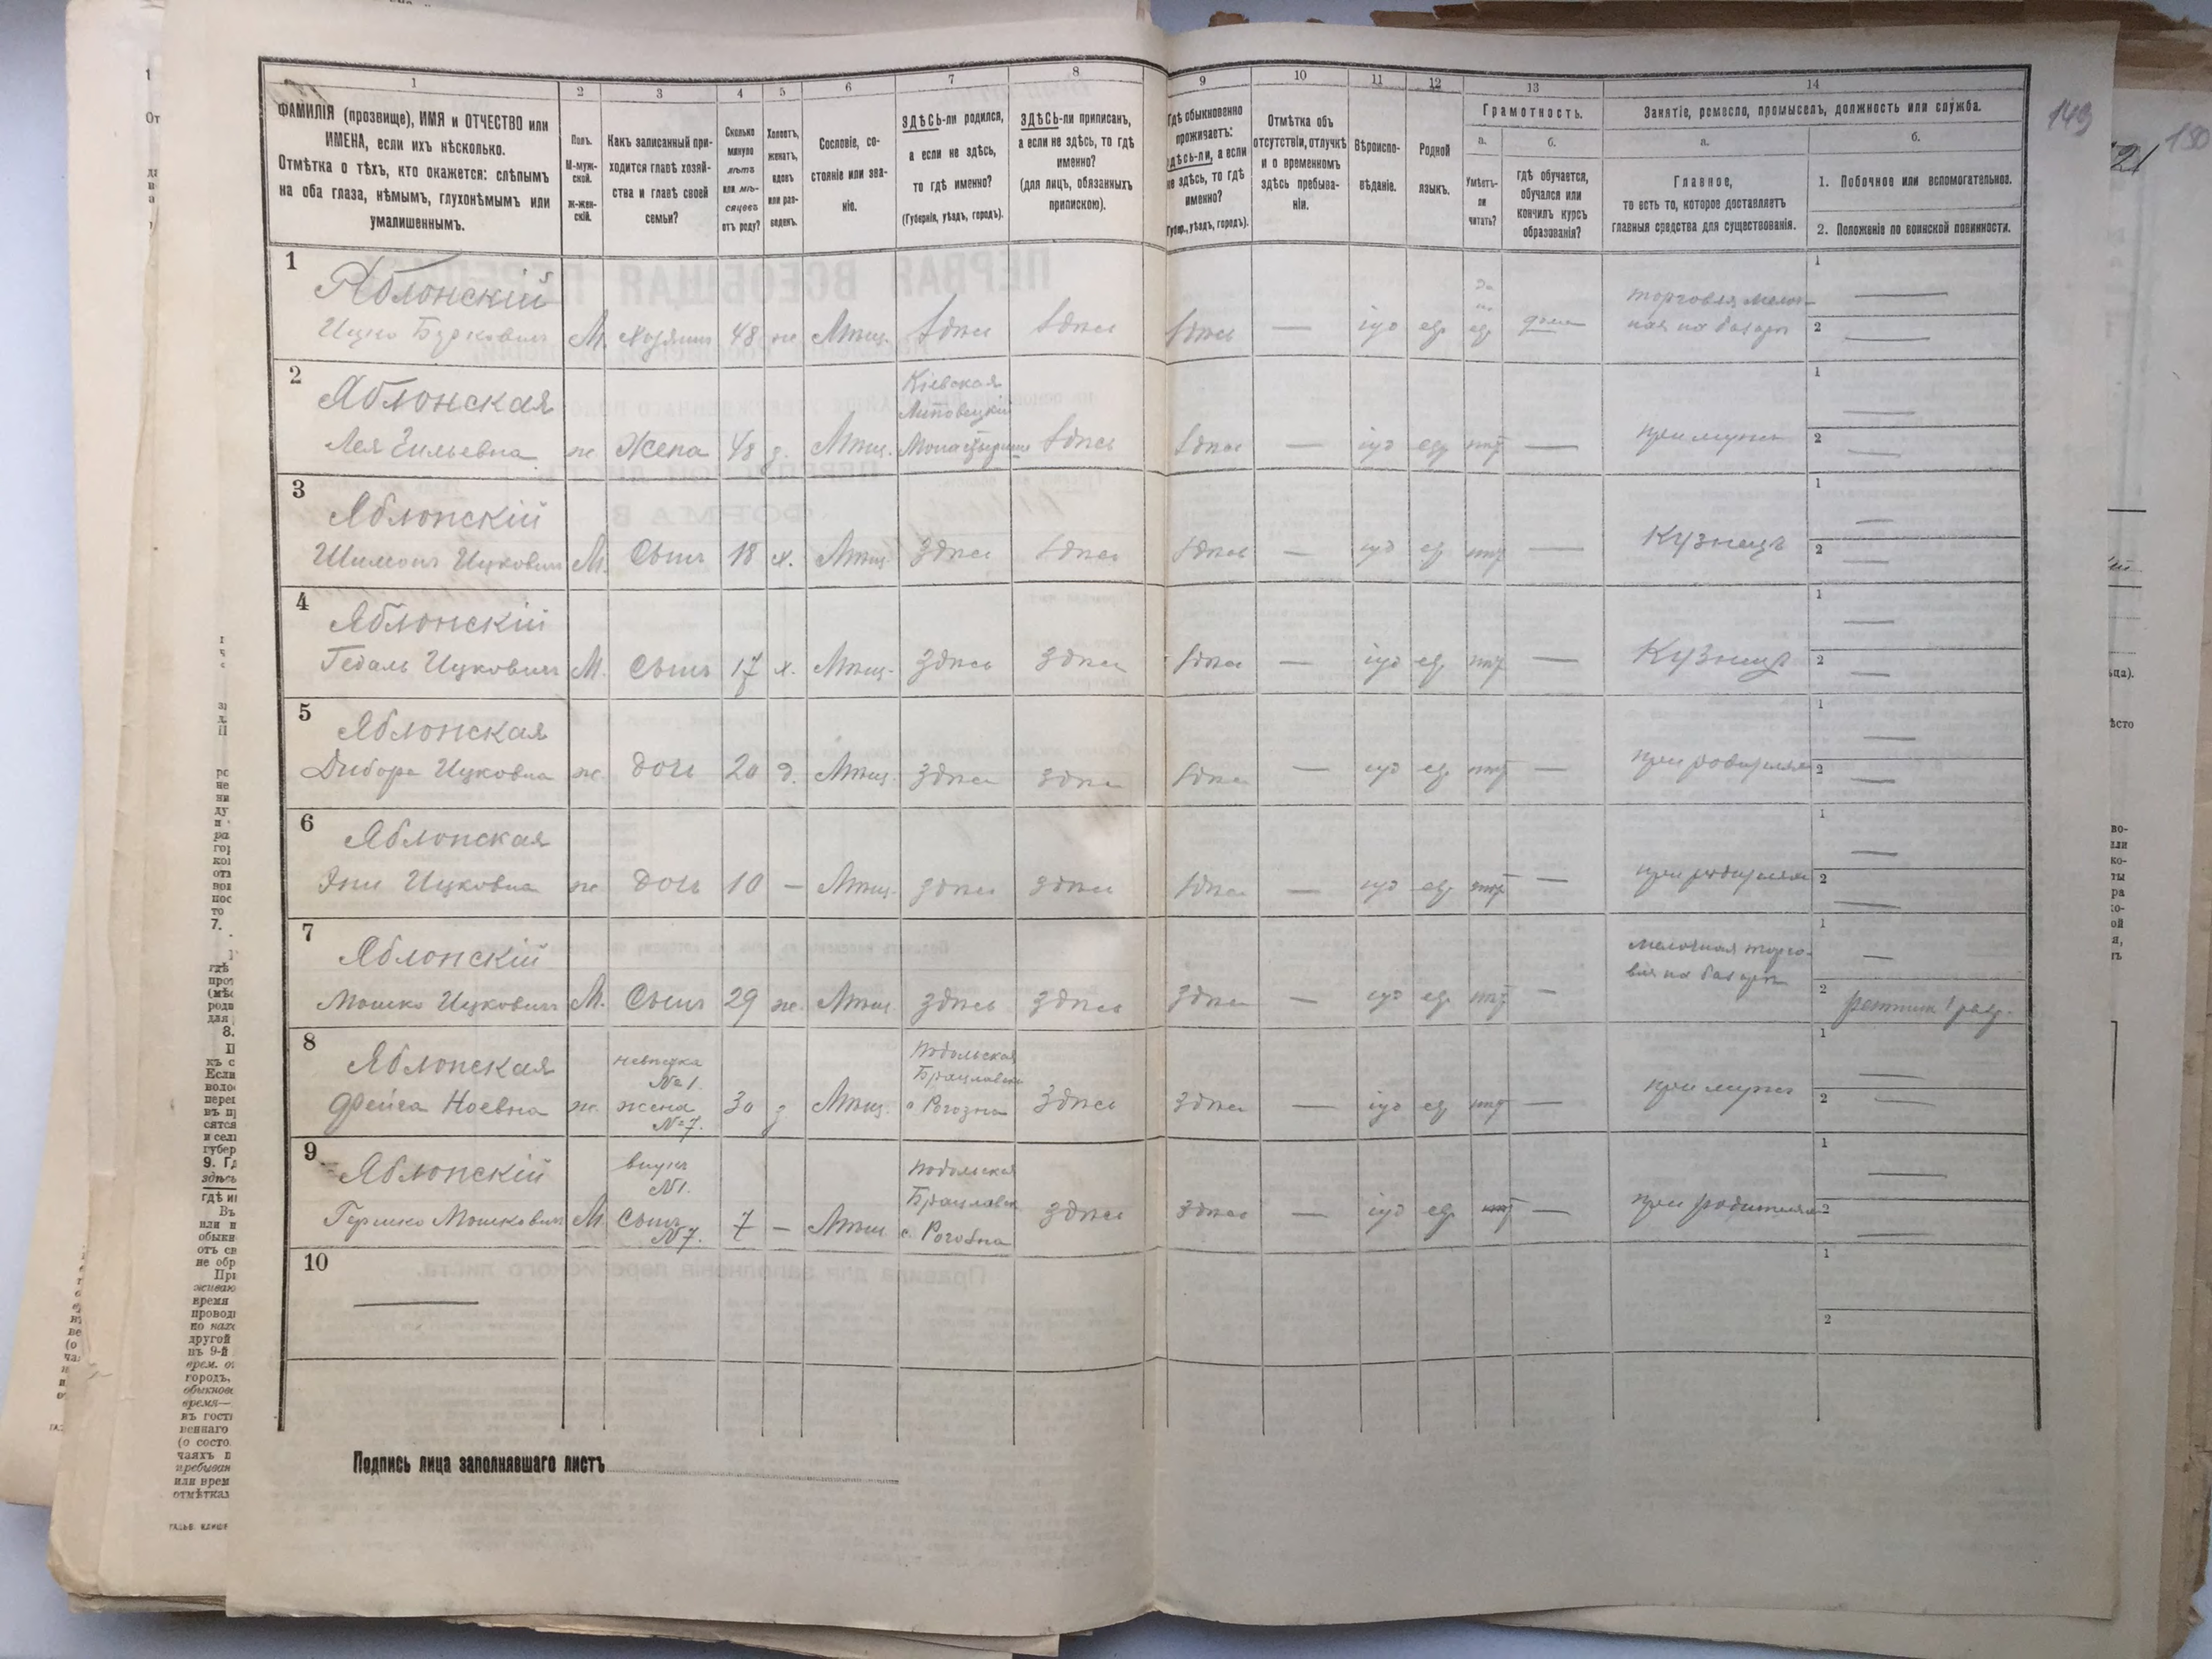 1
2
3
4
5
6
7
8
9
10
11
12
13
14
ФАМИЛІЯ (прозвище), ИМЯ и ОТЧЕСТВО или
ИМЕНА, если ихъ нѣсколько.
Отмѣтка о тѣхъ, кто окажется: слѣпымъ
на оба глаза, нѣмымъ, глухонѣмымъ или
умалишеннымъ.
Полъ.
М-муж-
ской.
ж-жен-
скій.
Какъ записанный при-
ходится главѣ хозяй-
ства и главѣ своей
семьи?
Сколько
минуло
лѣтъ
или мѣ-
сяцевъ
отъ роду?
Холостъ,
женатъ,
вдовъ
или раз-
веденъ.
Сословіе, со-
стояніе или зва-
ніе.
ЗДѢСЬ-ли родился,
а если не здѣсь,
то гдѣ именно?
(Губернія, уѣздъ, городъ).
ЗДѢСЬ-ли приписанъ,
а если не здѣсь, то гдѣ
именно?
(для лицъ, обязанныхъ
припискою).
Гдѣ обыкновенно
проживаетъ:
здѣсь-ли, а если
не здѣсь, то гдѣ
именно?
(Губер., уѣздъ, городъ).
Отмѣтка объ
отсутствіи, отлучкѣ
и о временномъ
здѣсь пребыва-
ніи.
Вѣроиспо-
вѣданіе.
Родной
языкъ.
Грамотность.
а.
Умѣетъ-
ли
читать?
б.
гдѣ обучается,
обучался или
кончилъ курсъ
образованія?
Занятіе, ремесло, промыселъ, должность или служба.
а.
Главное,
то есть то, которое доставляетъ
главныя средства для существованія.
б.
1. Побочное или вспомогательное.
2. Положеніе по воинской повинности.
149
150
1
Яблонскій
Ицко Бурковичъ М. Хозяинъ 48 же. Мѣщ. Здѣсь Здѣсь Здѣсь — іуд евр дома
торговля мелоч-
ная на базарѣ
1 —
2 —
2
Яблонская
Лея Гильевна ж Жена 48 з. Мѣщ.
Кіевская
Липовецкій
Монастырище
Здѣсь Здѣсь — іуд евр нѣт — при мужѣ
1 —
2 —
3
Яблонскій
Шимонъ Ицковичъ М. Сынъ 18 х. Мѣщ. Здѣсь Здѣсь Здѣсь — іуд евр нѣт — Кузнецъ
1 —
2 —
4
Яблонскій
Гедаль Ицковичъ М. Сынъ 17 х. Мѣщ. Здѣсь Здѣсь Здѣсь — іуд евр нѣт — Кузнецъ
1 —
2 —
5
Яблонская
Двбора Ицковна ж. дочь 20 д. Мѣщ. Здѣсь Здѣсь Здѣсь — іуд евр нѣт —
1 —
2 —
6
Яблонская
Ицковна ж дочь 10 — Мѣщ. здѣсь здѣсь Здѣсь — іуд евр нѣт —
1 —
2 —
7
Яблонскій
Мошко Ицковичъ М. Сынъ 29 же. Мѣщ. здѣсь здѣсь здѣсь — іуд евр нѣт —
мелочная торго-
вля на базарѣ
1 —
2 ратник 1 разр.
8
Яблонская
Фейга Ноевна ж.
невѣстка
№ 1.
жена
№ 7.
30 з. Мѣщ.
Подольская
Брацлавск
с Рогозна
Здѣсь здѣсь — іуд евр нѣт — при мужѣ
1 —
2 —
9
Яблонскій
Гершко Мошковичъ М.
внукъ
№ 1.
Сынъ
№ 7.
7 — Мѣщ.
Подольская
Брацлавск
с. Рогозна
здѣсь здѣсь — іуд евр нѣт — при родителях
1 —
2 —
10
—
1
2
Подпись лица заполнявшаго листъ